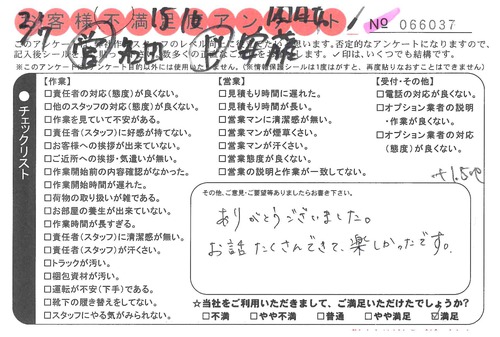 お客様(不満足度)アンケート
No 066037
3/7
このアンケート
記入後シールを
※このアンケートはアンケート目的以外には使用いたしません。(※情報保護シールは1度はがすと、再度貼りなおすことはできません)
チェックリスト
【作業】
□責任者の対応(態度)が良くない。
□他のスタッフの対応(態度)が良くない。
□作業を見ていて不安がある。
□責任者(スタッフ)に好感が持てない。
□お客様への挨拶が出来ていない。
□ご近所への挨拶・気遣いが無い。
□作業開始前の内容確認がなかった。
□作業開始時間が遅れた。
□荷物の取り扱いが雑である。
□お部屋の養生が出来ていない。
□作業時間が長すぎる。
□責任者(スタッフ)に清潔感が無い。
□責任者(スタッフ)が汗くさい。
□トラックが汚い。
□梱包資材が汚い。
□運転が不安(下手)である。
□靴下の履き替えをしてない。
□スタッフにやる気がみられない。
【営業】
□見積もり時間に遅れた。
□見積もり時間が長い。
□営業マンに清潔感が無い。
□営業マンが煙草くさい。
□営業マンが汗くさい。
□営業態度が良くない。
□営業の説明と作業が一致してない。
【受付・その他】
□電話の対応が良くない。
□オプション業者の説明
・作業が良くない。
□オプション業者の対応
(態度)が良くない。
+1.5h
その他、ご意見・ご要望等ありましたらお書き下さい。
ありがとうございました。
お話たくさんできて、楽しかったです。
☆当社をご利用いただきまして、ご満足いただけたでしょうか?
□不満 □やや不満 □普通 □やや満足 ☑満足